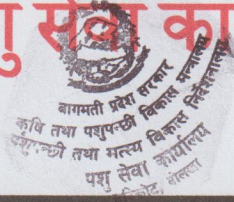 सेवा का
बागमती प्रदेश सरकार
कृषि तथा पशुपन्छी विकास मन्त्रालय
पशुपन्छी तथा मत्स्य विकास निर्देशनालय
पशु सेवा कार्यालय